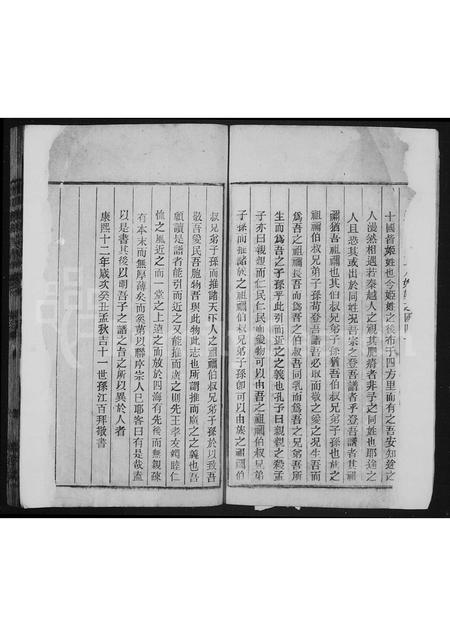 十國皆姬姓也今姬姓之後布于四方里而有之吾安知途之
人漠然相遇若秦越人之視其肥瘠者非予之同姓也耶途之
人且恐其或出於同姓况吾宗之登吾譜者乎登吾譜者其祖
禰猶吾祖禰也其伯叔兄弟子孫猶吾伯叔兄弟子孫也族之
祖禰伯叔兄弟子孫苟登吾譜吾必敬而敬之愛之况生吾而
爲吾之祖禰長吾而爲吾之伯叔吾同乳而爲吾之兄弟吾所
生而爲吾之子孫乎此引而近之之義也孔子曰親親之殺孟
子亦曰親親而仁民仁民而愛物可以由吾之祖禰伯叔兄弟
子孫而推諸族之祖禰伯叔兄弟子孫卽可以由族之祖禰伯
叔兄弟子孫而推諸天下人之祖禰伯叔兄弟子孫於以致吾
敬吾愛民吾胞物吾與此物此志也所謂推而廣之之義也吾
願讀是譜者能引而近之又能推而廣之則先王老友婣睦仁
恤之風近之而一堂之上遠之而放於四海有先後而無親疎
有本末而無厚薄矣而奚第以聯序宗人已耶客曰有是哉盍
以是書其後以明吾子之譜之吾之所以異於人者
康熙十二年歲次癸丑孟秋吉十一世孫江百拜敬書